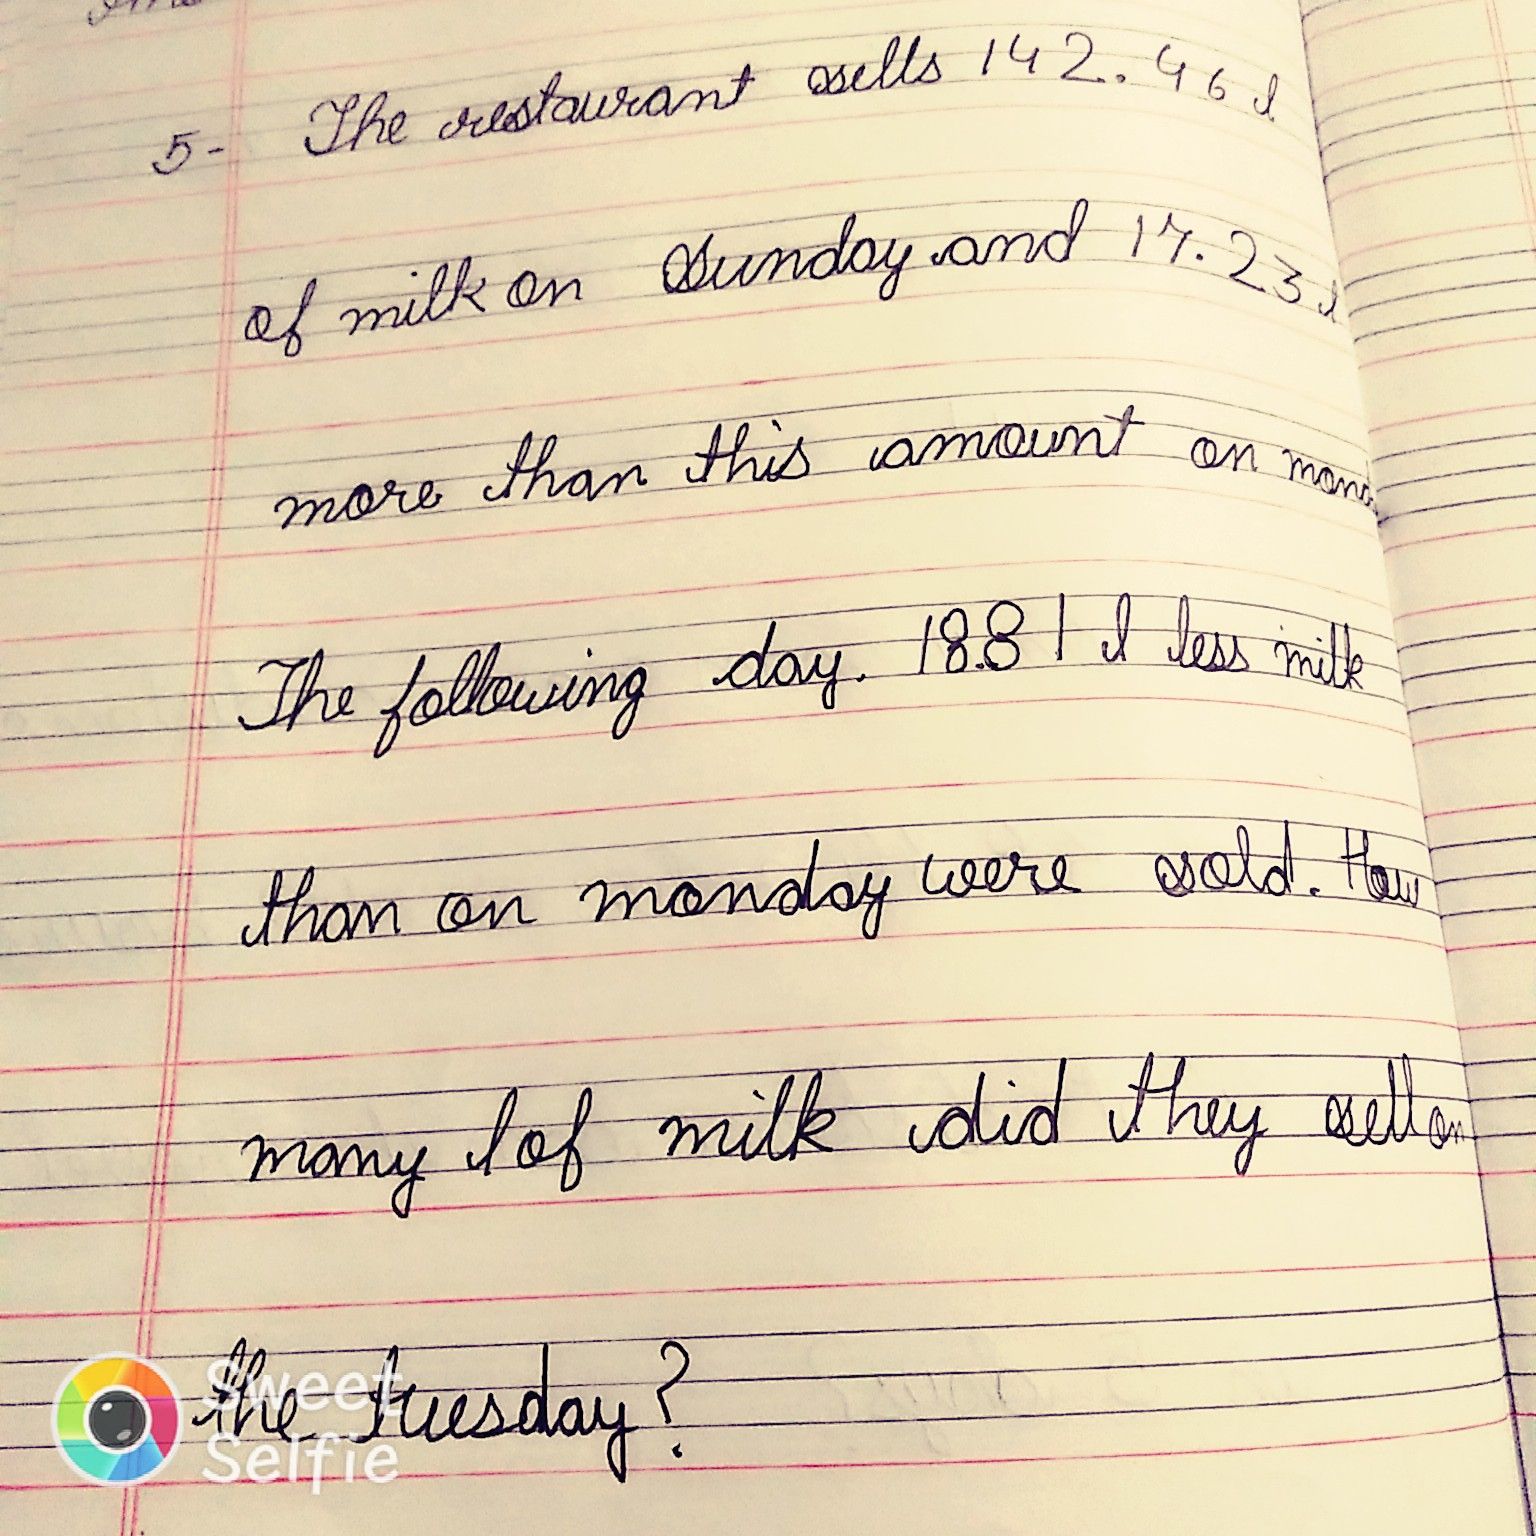 5- The restaurant sells 142.46 l
of milk on Sunday and 17.23 l
more than this amount on
The following day. 18.81 l less milk
than on monday were sold. How
many l of milk did they sell on
the tuesday?
Sweet
Selfie